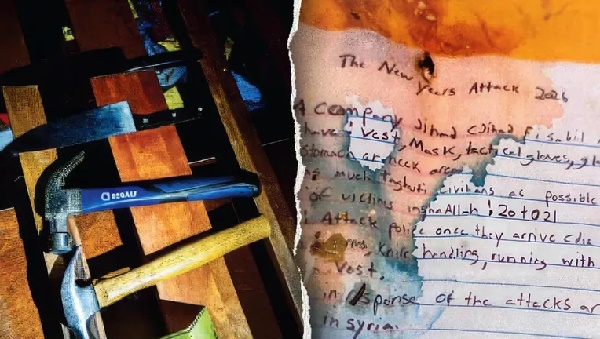 KOBALT
The New Years Attack 2026
Company Jihad (Jihad fi sabil
have: Vest, Mask, tactical gloves,
stomach or neck area
much Taghuti civilians as possible
of victims inshaAllah: 20 to 21
Attack police once they arrive (die
arms, knife handling, running with
Vest.
in response of the attacks
in Syria.